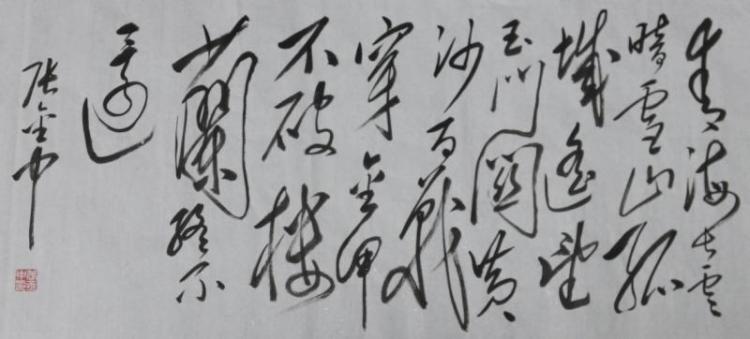 青海长雲
暗雪山孤
城遥望
玉门關黄
沙百戰
穿金甲
不破樓
蘭終不
還
张金中